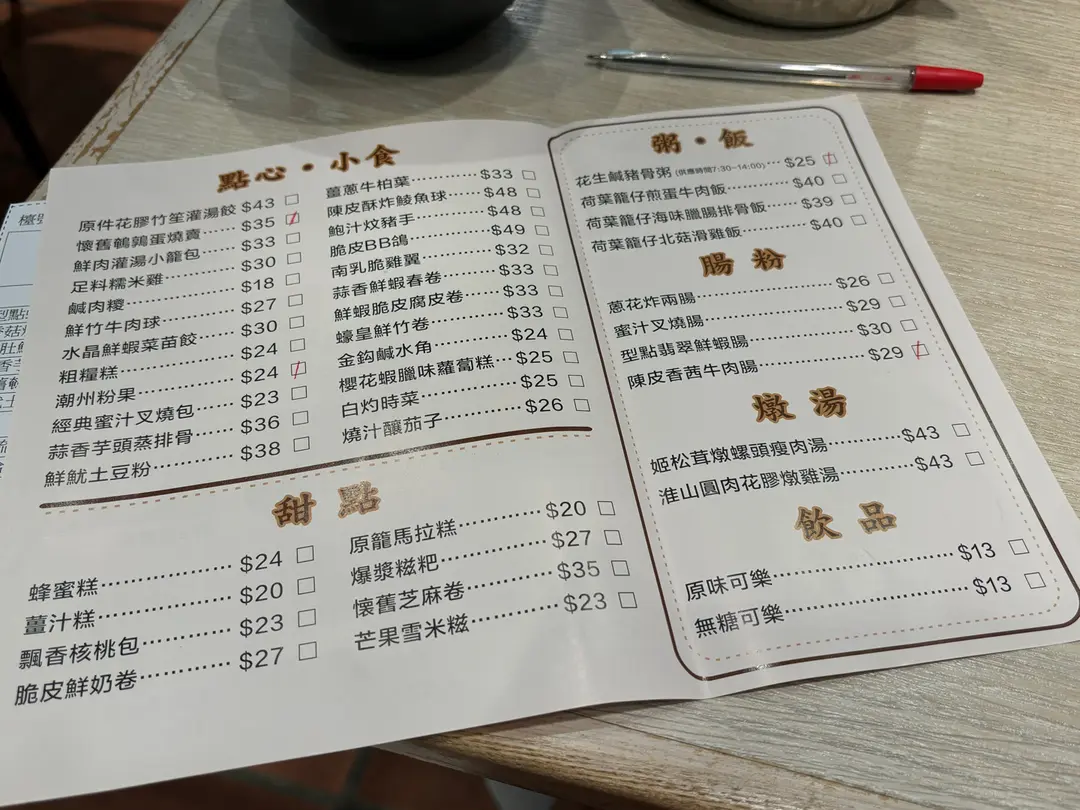 點心・小食
原件花膠竹笙灌湯餃 $43
懷舊鵪鶉蛋燒賣 $35
鮮肉灌湯小籠包 $33
足料糯米雞 $30
鹹肉糉 $18
鮮竹牛肉球 $27
水晶鮮蝦菜苗餃 $30
粗糧糕 $24
潮州粉果 $24
經典蜜汁叉燒包 $23
蒜香芋頭蒸排骨 $36
鮮魷土豆粉 $38
薑蔥牛柏葉 $33
陳皮酥炸鯪魚球 $48
鮑汁炆豬手 $48
脆皮BB鴿 $49
南乳脆雞翼 $32
蒜香鮮蝦春卷 $33
鮮蝦脆皮腐皮卷 $33
蠔皇鮮竹卷 $33
金鈎鹹水角 $24
櫻花蝦臘味蘿蔔糕 $25
白灼時菜 $25
燒汁釀茄子 $26
甜點
蜂蜜糕 $24
薑汁糕 $20
飄香核桃包 $23
脆皮鮮奶卷 $27
原籠馬拉糕 $20
爆漿糍粑 $27
懷舊芝麻卷 $35
芒果雪米糍 $23
粥・飯
花生鹹豬骨粥 (供應時間7:30~14:00) $25
荷葉籠仔煎蛋牛肉飯 $40
荷葉籠仔海味臘腸排骨飯 $39
荷葉籠仔北菇滑雞飯 $40
腸粉
蔥花炸兩腸 $26
蜜汁叉燒腸 $29
型點翡翠鮮蝦腸 $30
陳皮香茜牛肉腸 $29
燉湯
姬松茸燉螺頭瘦肉湯 $43
淮山圓肉花膠燉雞湯 $43
飲品
原味可樂 $13
無糖可樂 $13